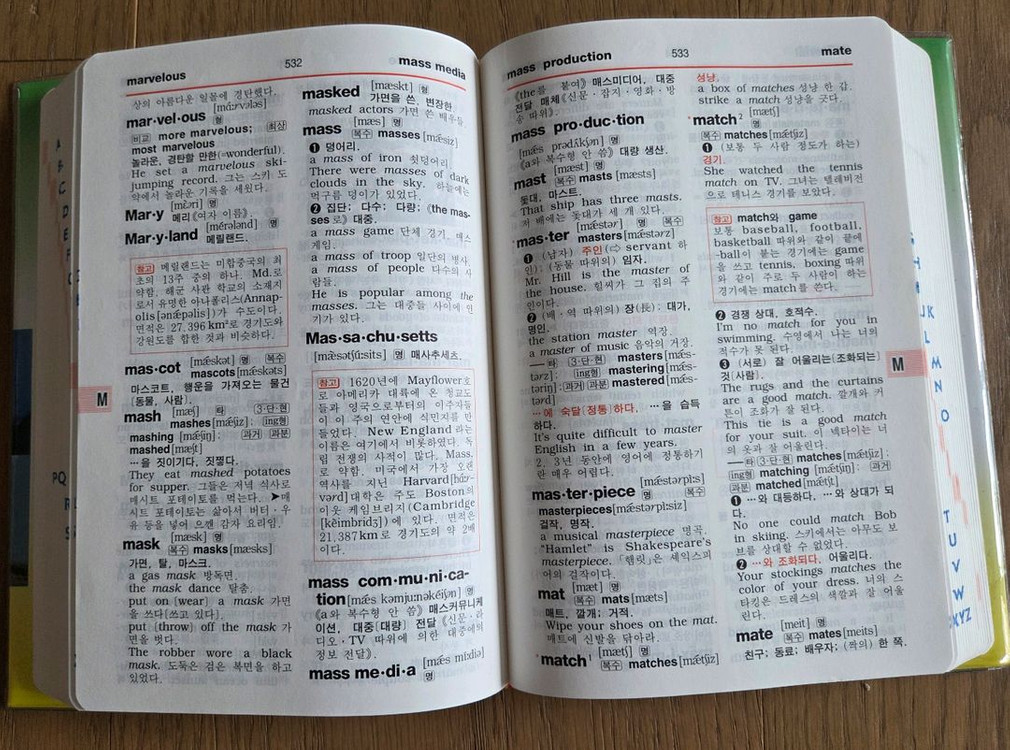 marvelous 532 mass media
상의 아름다운 일몰에 경탄했다.
mar·vel·ous [máːrvələs] 형
비교 more marvelous; 최상
most marvelous
놀라운, 경탄할 만한(=wonderful).
He set a marvelous ski-
jumping record. 그는 스키 도
약에서 놀라운 기록을 세웠다.
Mar·y [mɛ́ːri] 명
메리《여자 이름》.
Mar·y·land [mérələnd] 명
메릴랜드.
참고 메릴랜드는 미합중국의 최
초의 13주 중의 하나. Md.로
약함. 해군 사관 학교의 소재지
로서 유명한 아나폴리스(Annap-
olis[ənǽpəlis])가 수도이다.
면적은 27,396 km²로 경기도와
강원도를 합한 것과 비슷하다.
mas·cot [mǽskət] 명 복수
mascots[mǽskəts]
마스코트, 행운을 가져오는 물건
[동물, 사람].
mash [mæʃ] 타 3·단·현
mashes[mǽʃiz]; ing형
mashing [mǽʃiŋ]; 과거 과분
mashed[mæʃt]
…을 짓이기다, 짓찧다.
They eat mashed potatoes
for supper. 그들은 저녁 식사로
매시트 포테이토를 먹는다. ➤매
시트 포테이토는 삶아서 버터·우
유 등을 넣어 으깬 감자 요리임.
mask [mæsk] 명
복수 masks[mæsks]
가면, 탈, 마스크.
a gas mask 방독면.
the mask dance 탈춤.
put on [wear] a mask 가면
을 쓰다[쓰고 있다].
put [throw] off the mask 가
면을 벗다.
The robber wore a black
mask. 도둑은 검은 복면을 하고
있었다.
masked [mæskt] 형
가면을 쓴, 변장한.
masked actors 가면 쓴 배우들.
mass [mæs] 명
복수 masses[mǽsiz]
❶ 덩어리.
a mass of iron 쇳덩어리.
There were masses of dark
clouds in the sky. 하늘에는
먹구름 덩이가 있었다.
❷ 집단; 다수; 다량; 《the mas-
ses로》 대중.
a mass game 단체 경기, 매스
게임.
a mass of troop 일단의 병사.
a mass of people 다수의 사
람들.
He is popular among the
masses. 그는 대중들 사이에 인
기가 있다.
Mas·sa·chu·setts
[mæ̀sətʃúːsits] 명 매사추세츠.
참고 1620년에 Mayflower호
로 아메리카 대륙에 온 청교도
들과 영국으로부터의 이주자들
이 이 주의 연안에 식민지를 만
들었다. New England라는
이름은 여기에서 비롯하였다. 독
립 전쟁의 사적이 많다. Mass.
로 약함. 미국에서 가장 오랜
역사를 지닌 Harvard[háːr-
vərd]대학은 주도 Boston의
이웃 케임브리지(Cambridge
[kéimbridʒ])에 있다. 면적은
21,387km로 경기도의 약 2배
이다.
mass com·mu·ni·ca-
tion [mǽs kəmjùːnəkéiʃn] 명
《a와 복수형 안 씀》 매스커뮤니케
이션, 대중[대량] 전달 《신문·라
디오·TV 따위에 의한 대중에의
정보 전달》.
mass me·di·a [mǽs míːdiə]
명
M
mass production 533 mate
《the를 붙여》 매스미디어, 대중
전달 매체《신문·잡지·영화·방
송 따위》.
mass pro·duc·tion
[mǽs prədʌ́kʃən] 명
《a와 복수형 안 씀》 대량 생산.
mast [mæst] 명
복수 masts [mæsts]
돛대, 마스트.
That ship has three masts.
저 배에는 돛대가 세 개 있다.
*mas·ter [mǽstər] 명 복수
masters[mǽstərz]
❶ (남자) 주인(⇨ servant 하
인); (동물 따위의) 임자.
Mr. Hill is the master of
the house. 힐씨가 그 집의 주
인이다.
❷ (배·역 따위의) 장(長), 대가,
명인.
the station master 역장.
a master of music 음악의 거장.
── 타 3·단·현 masters[mǽs-
tərz]; ing형 mastering[mǽs-
təriŋ]; 과거 과분 mastered[mǽs-
tərd]
…에 숙달[정통]하다, …을 습득
하다.
It's quite difficult to master
English in a few years.
2, 3년 동안에 영어에 정통하기
란 매우 어렵다.
mas·ter·piece [mǽstərpìːs]
명 복수
masterpieces[mǽstərpìːsiz]
걸작, 명작.
a musical masterpiece 명곡.
"Hamlet" is Shakespeare's
masterpiece. 「햄릿」은 셰익스피
어의 걸작이다.
mat [mæt] 명
복수 mats [mæts]
매트, 깔개; 거적.
Wipe your shoes on the mat.
매트에 신발을 닦아라.
*match¹ [mætʃ] 명
복수 matches[mǽtʃiz]
성냥.
a box of matches 성냥 한 갑.
strike a match 성냥을 긋다.
*match² [mætʃ] 명
복수 matches[mǽtʃiz]
❶ (보통 두 사람 정도가 하는)
경기.
She watched the tennis
match on TV. 그녀는 텔레비전
으로 테니스 경기를 보았다.
참고 match와 game
보통 baseball, football,
basketball 따위와 같이 끝에
-ball이 붙는 경기에는 game
을 쓰고 tennis, boxing 따위
와 같이 주로 두 사람이 하는
경기에는 match를 쓴다.
❷ 경쟁 상대, 호적수.
I'm no match for you in
swimming. 수영에서 나는 너의
적수가 못 된다.
❸ (서로) 잘 어울리는[조화되는]
것[사람].
The rugs and the curtains
are a good match. 깔개와 커
튼이 조화가 잘 된다.
This tie is a good match
for your suit. 이 넥타이는 너
의 옷과 잘 어울린다.
── 타 3·단·현 matches[mǽtʃiz];
ing형 matching [mǽtʃiŋ]; 과거
과분 matched [mætʃt]
❶ …와 대등하다. …와 상대가 되
다.
No one could match Bob
in skiing. 스키에서는 아무도 보
브를 상대할 수 없었다.
❷ …와 조화되다, 어울리다.
Your stockings matches the
color of your dress. 너의 스
타킹은 드레스의 색깔과 잘 어울
린다.
mate [meit] 명
복수 mates[meits]
친구; 동료; 배우자; (짝의) 한 쪽.
M
JK
L
M
N
O
T
U
V
W
XYZ